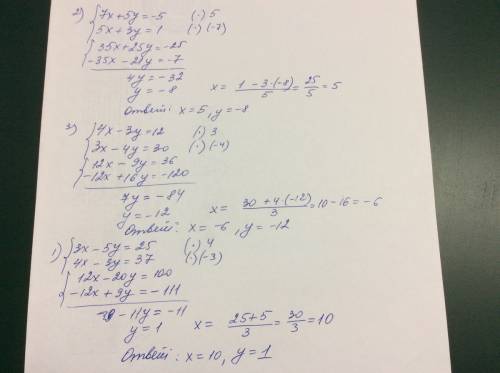 2) { 7x+5y=-5 (·) 5
5x+3y=1 (·) (-7)
{ 35x+25y=-25
-35x-21y=-7
4y=-32
y=-8 x= (1-3·(-8))/5 = 25/5 = 5
Ответ: x=5, y=-8
3) { 4x-3y=12 (·) 3
3x-4y=30 (·) (-4)
{ 12x-9y=36
-12x+16y=-120
7y=-84
y=-12 x= (30+4·(-12))/3 = 10-16=-6
Ответ: x=-6, y=-12
1) { 3x-5y=25 (·) 4
4x-3y=37 (·) (-3)
{ 12x-20y=100
-12x+9y=-111
-11y=-11
y=1 x= (25+5)/3 = 30/3 = 10
Ответ: x=10, y=1